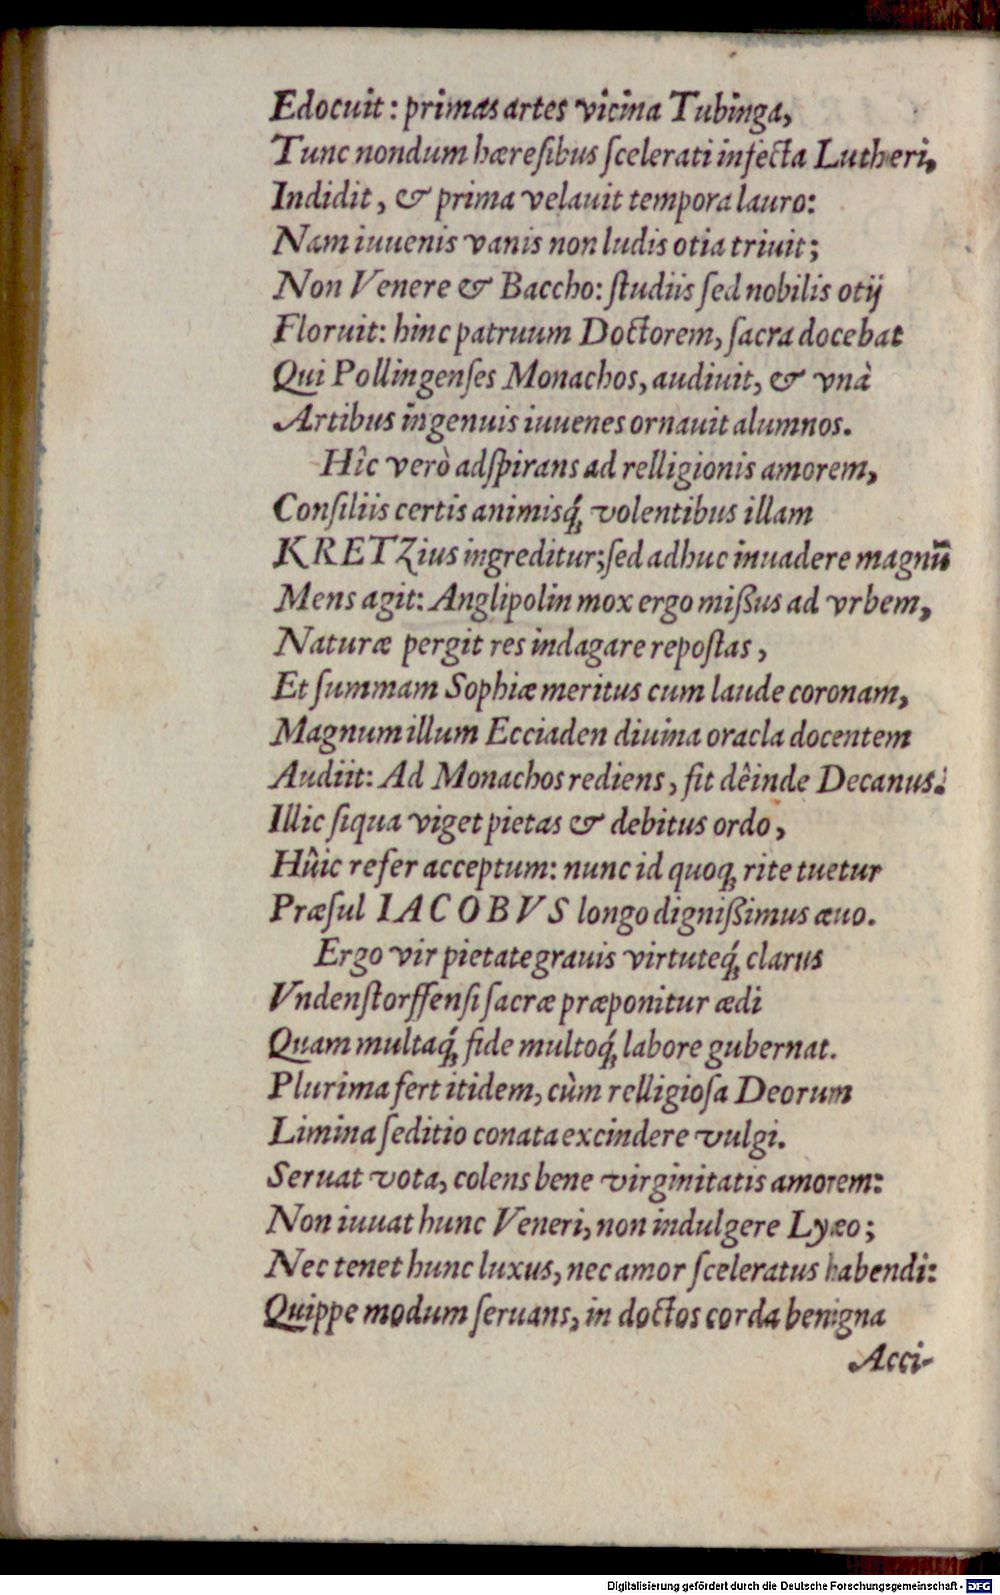 Edocuit: primas artes vicina Tubinga,
Tunc nondum hæresibus scelerati infecta Lutheri,
Indidit, & prima velauit tempora lauro:
Nam iuuenis vanis non ludis otia triuit;
Non Venere & Baccho: studiis sed nobilis otij
Floruit: hinc patruum Doctorem, sacra docebat
Qui Pollingenses Monachos, audiuit, & vnà
Artibus ingenuis iuuenes ornauit alumnos.
Hîc verò adspirans ad relligionis amorem,
Consiliis certis animisq́; volentibus illam
KRETZius ingreditur; sed adhuc inuadere magnũ
Mens agit: Anglipolin mox ergo mißus ad vrbem,
Naturæ pergit res indagare repostas,
Et summam Sophiæ meritus cum laude coronam,
Magnum illum Ecciaden diuina oracla docentem
Audiit: Ad Monachos rediens, fit dêinde Decanus.
Illic siqua viget pietas & debitus ordo,
Hûic refer acceptum: nunc id quoq; rite tuetur
Præsul IACOBVS longo dignißimus æuo.
Ergo vir pietate grauis virtuteq́; clarus
Vndenstorffensi sacræ præponitur ædi
Quam multaq́; fide multoq́; labore gubernat.
Plurima fert itidem, cùm relligiosa Deorum
Limina seditio conata excindere vulgi.
Seruat vota, colens bene virginitatis amorem:
Non iuuat hunc Veneri, non indulgere Lyæo;
Nec tenet hunc luxus, nec amor sceleratus habendi:
Quippe modum seruans, in doctos corda benigna
Acci-
Digitalisierung gefördert durch die Deutsche Forschungsgemeinschaft - DFG